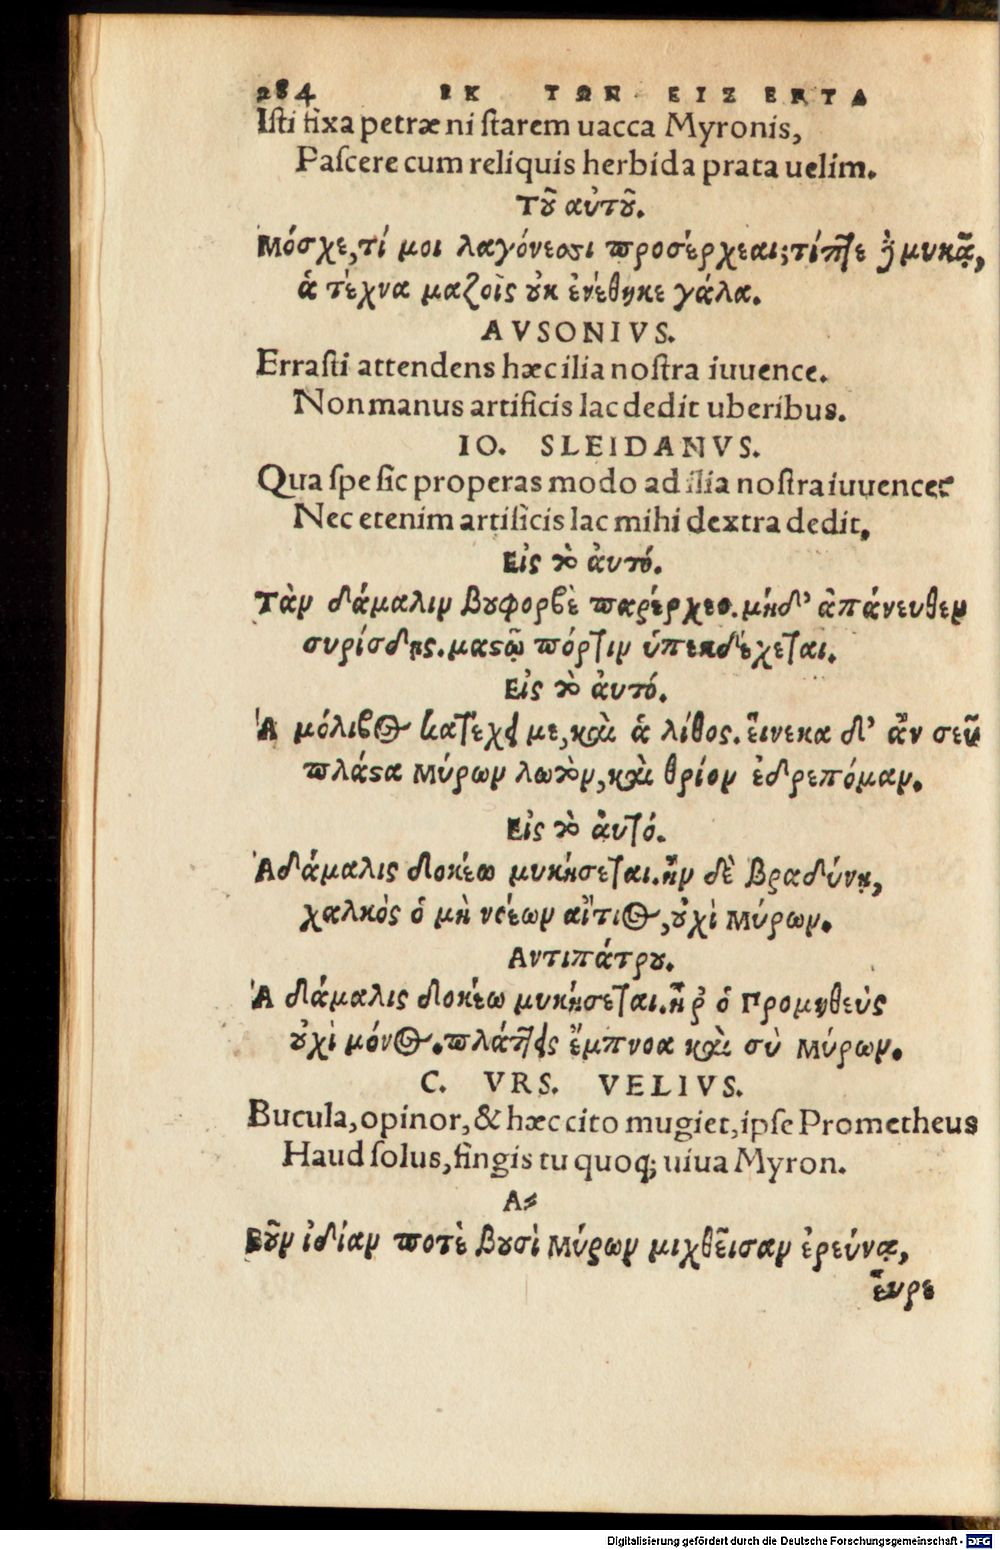 284 ΕΚ ΤΩΝ ΕΙΣ ΕΡΓΑ
Isti fixa petræ ni starem uacca Myronis,
Pascere cum reliquis herbida prata uelim.
Τοῦ αὐτοῦ.
Μόσχε, τί μοι λαγόνεσσι προσέρχεαι; τίπτε δὲ μυκᾷ,
ἁ τέχνα μαζοῖς οὐκ ἐνέθηκε γάλα.
AVSONIVS.
Errasti attendens hæc ilia nostra iuuence.
Non manus artificis lac dedit uberibus.
IO. SLEIDANVS.
Qua spe sic properas modo ad ilia nostra iuuence?
Nec etenim artificis lac mihi dextra dedit.
Εἰς τὸ ἀυτό.
Τὰν δάμαλιν βουφορβὲ παρέρχεο. μήδ' ἀπάνευθεν
συρίσδῃς. μαστῷ πόρτιν ὑπεκδέχεται.
Εἰς τὸ ἀυτό.
Ἁ μόλιβος κατέχει με, καὶ ἁ λίθος. εἵνεκα δ' ἂν σεῦ
πλάστα Μύρων λωτὸν, καὶ θρίον ἐδρεπόμαν.
Εἰς τὸ ἀυτό.
Ἁ δάμαλις δοκέω μυκήσεται. ἢν δὲ βραδύνῃ,
χαλκὸς ὁ μὴ νοέων αἴτιος, οὐχὶ Μύρων.
Αντιπάτρου.
Ἁ δάμαλις δοκέω μυκήσεται. ἦρ ὁ Προμηθεὺς
οὐχὶ μόνος. πλάττεις ἔμπνοα καὶ σὺ Μύρων.
C. VRS. VELIVS.
Bucula, opinor, & hæc cito mugiet, ipse Prometheus
Haud solus, fingis tu quoq; uiua Myron.
Βοῦν ἰδίαν ποτὲ βουσὶ Μύρων μιχθεῖσαν ἐρεύνα,
εὗρε
Digitalisierung gefördert durch die Deutsche Forschungsgemeinschaft - DFG